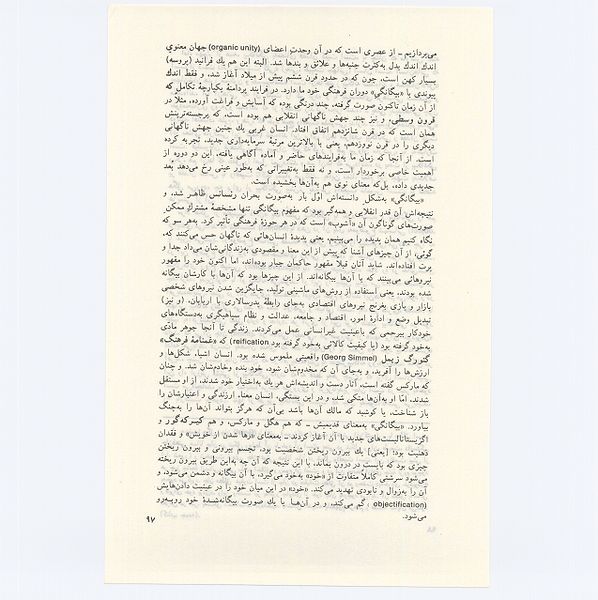 می‌پردازیم ــ از عصری است که در آن وحدت اعضای (organic unity) جهان معنوی
اندك اندك بدل به‌کثرت جنبه‌ها و علائق و بندها شد. البته این هم یك فرایند (پروسه)
بسیار کهن است، چون که در حدود قرن ششم پیش از میلاد آغاز شد، و فقط اندك
پیوندی با «بیگانگیِ» دوران فرهنگی خود ما دارد. در فرایند پردامنهٔ یکپارچهٔ تکامل که
از آن زمان تاکنون صورت گرفته، چند درنگی بوده که آسایش و فراغت آورده، مثلاً در
قرون وسطی، و نیز چند جهش ناگهانی انقلابی هم بوده است، که برجسته‌ترینش
همان است که در قرن شانزدهم اتفاق افتاد. انسان غربی یك چنین جهش ناگهانی
دیگری را در قرن نوزدهم، یعنی با بالاترین مرتبهٔ سرمایه‌داری جدید، تجربه کرده
است. از آنجا که زمان ما به‌فرایندهای حاضر و آماده آگاهی یافته، این دو دوره از
اهمیت خاصی برخوردار است، و نه فقط به‌تغییراتی که به‌طور عینی رخ می‌دهد بُعد
جدیدی داده، بل‌که معنای نوی هم به‌آن‌ها بخشیده است.
«بیگانگی» به‌شکل دانسته‌اش اول بار به‌صورت بحران رنسانس ظاهر شد، و
نتیجه‌اش آن قدر انقلابی و همه‌گیر بود که مفهوم بیگانگی تنها مشخصهٔ مشترك ممکنِ
صورت‌های گوناگون آن «آشوب» است که در هر حوزهٔ فرهنگی تأثیر کرد. به‌هر سو که
نگاه کنیم همان پدیده را می‌بینیم، یعنی پدیدهٔ انسان‌هائی که ناگهان حس می‌کنند که،
گوئی، از آن چیزهای آشنا که پیش از این معنا و مقصودی به‌زندگانی‌شان می‌داد جدا و
پرت افتاده‌اند. شاید آنان قبلاً مقهور حاکمان جبار بوده‌اند، اما اکنون خود را مقهور
نیروهائی می‌بینند که با آن‌ها بیگانه‌اند. از این چیزها بود که آن‌ها با کارشان بیگانه
شده بودند، یعنی استفاده از روش‌های ماشینی تولید، جایگزین شدن نیروهای شخصی
بازار و بازی بغرنج نیروهای اقتصادی به‌جای رابطهٔ پدرسالاری با اربابان، (و نیز)
تبدیل وضع و ادارهٔ امور، اقتصاد و جامعه، عدالت و نظام سپاهیگری به‌دستگاه‌های
خودکار بیرحمی که باعینیت غیرانسانی عمل می‌کردند. زندگی تا آنجا جوهر مادّی
به‌خود گرفته بود (یا کیفیت کالائی به‌خود گرفته بود reification) که «غمنامهٔ فرهنگ»
گئورگ زیمل (Georg Simmel) واقعیتی ملموس شده بود. انسان اشیاء، شکل‌ها و
ارزش‌ها را آفرید، و به‌جای آن که مخدوم‌شان شود، خود بنده و خادم‌شان شد. و چنان
که مارکس گفته است، آثار دست و اندیشه‌اش هر یك به‌اختیار خود شدند، از او مستقل
شدند، امّا او به‌آن‌ها متکی شد، و در این بستگی، انسان معنا، ارزندگی و اعتبارشان را
باز شناخت، یا کوشید که مالك آن‌ها باشد بی‌آن که هرگز بتواند آن‌ها را به‌چنگ
بیاورد. «بیگانگی» به‌معنای قدیمیش ــ که هم هگل و مارکس، و هم کیرکه‌گور و
اگزیستانسیالیست‌های جدید با آن آغاز کردند ــ به‌معنای «رها شدن از خویش» و فقدان
ذهنیت بود؛ [یعنی] یك بیرون ریختن شخصیت بود، تجسم بیرونی و بیرون ریختن
چیزی بود که بایست در درون بماند، با این نتیجه که آن چه به‌این طریق بیرون ریخته
می‌شود سرشتی کاملاً متفاوت از «خود» به‌خود می‌گیرد، با آن بیگانه و دشمن می‌شود، و
آن را به‌زوال و نابودی تهدید می‌کند. «خود» در این میان خود را در عینیت دادن‌هایش
(objectification) گم می‌کند، و در آن‌ها با یك صورت بیگانه‌شدهٔ خود روبه‌رو
می‌شود.
۹۷